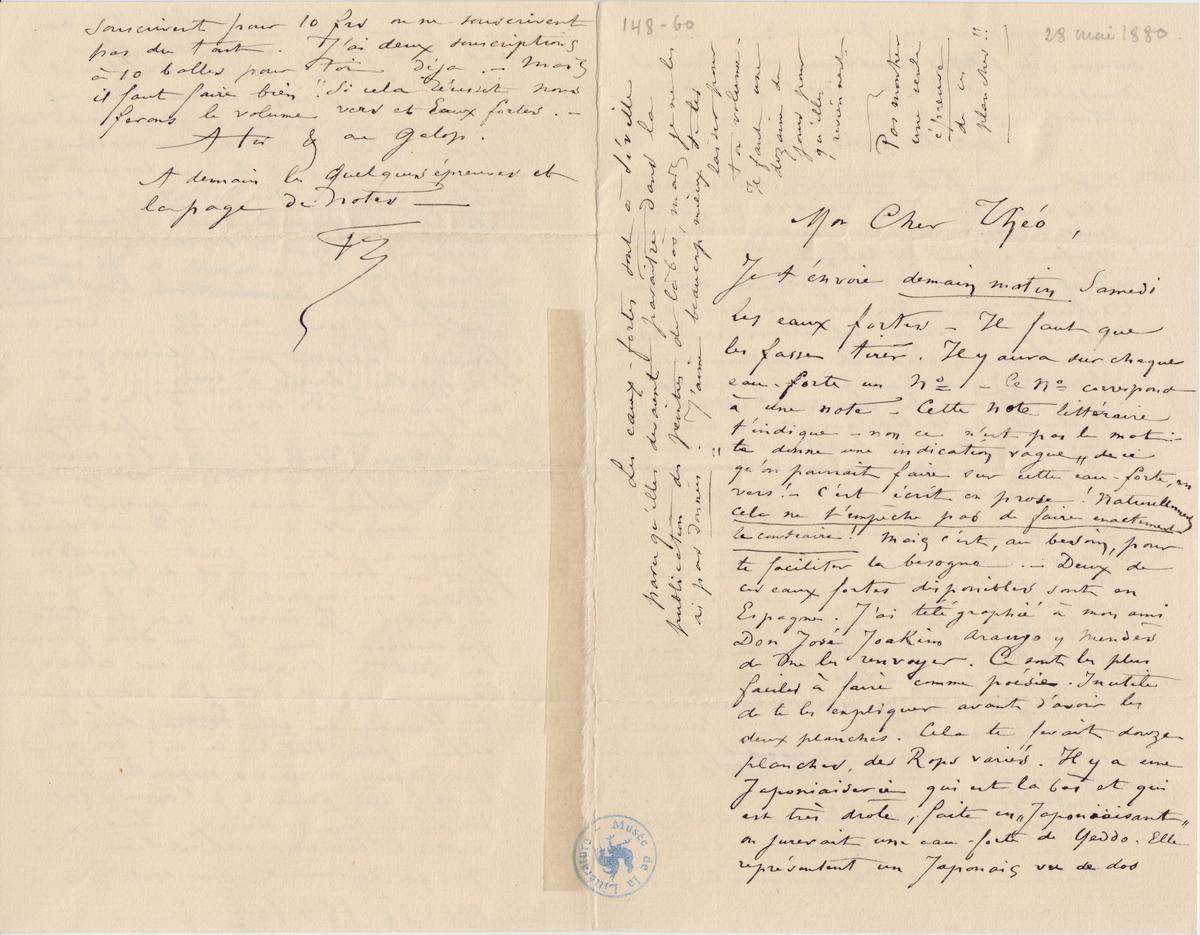 148-60
28 mai 1880.
Mon Cher Théo,
Je t'envoie demain matin Samedi
les eaux fortes – Il faut que
les fasse tirer. Il y aura sur chaque
eau-forte un Nº – Ce Nº correspond
à une note – Cette Note littéraire
t'indique – non ce n'est pas le mot –
te donne une indication vague „ de ce
qu'on pourrait faire sur cette eau-forte, en
vers! – C'est écrit en prose! Naturellement
cela ne t'empêche pas de faire exactement
le contraire! Mais c'est, au besoin, pour
te faciliter la besogne. – Deux de
ces eaux fortes disponibles sont en
Espagne. J'ai télégraphié à mon ami
Don José Joakim Araujo y Mendès
de me les renvoyer. Ce sont les plus
faciles à faire comme poésie. Inutile
de te les expliquer avant d'avoir les
deux planches. Cela te ferait douze
planches, des Rops variés. Il y a une
Japoniaiserie qui est là bas et qui
est très drôle, faite en „Japoniaisant"
on jurerait une eau-forte de Yeddo. Elle
représentent un Japonais vu de dos
Les eaux-fortes sont à Séville
parce qu'elles devaient paraître dans la
publication des peintres de là bas, mais je ne les
ai pas données. J'aime beaucoup mieux
les
laisser pour
ton volume –
Il faut une
dizaine de
jours pour
qu'elles
reviennent –
Pas montrer
une seule
épreuve
de ces
planches!!
souscrivent pour 10 frs ou ne souscrivent
pas du tout. J'ai deux souscriptions
à 10 balles pour toi déja. – Mais
il faut faire bien! Si cela réussit nous
ferons le volume vers et Eaux fortes. –
A toi & au Galop.
A demain les quelques épreuves et
la page de Notes —
Musée de la Littérature